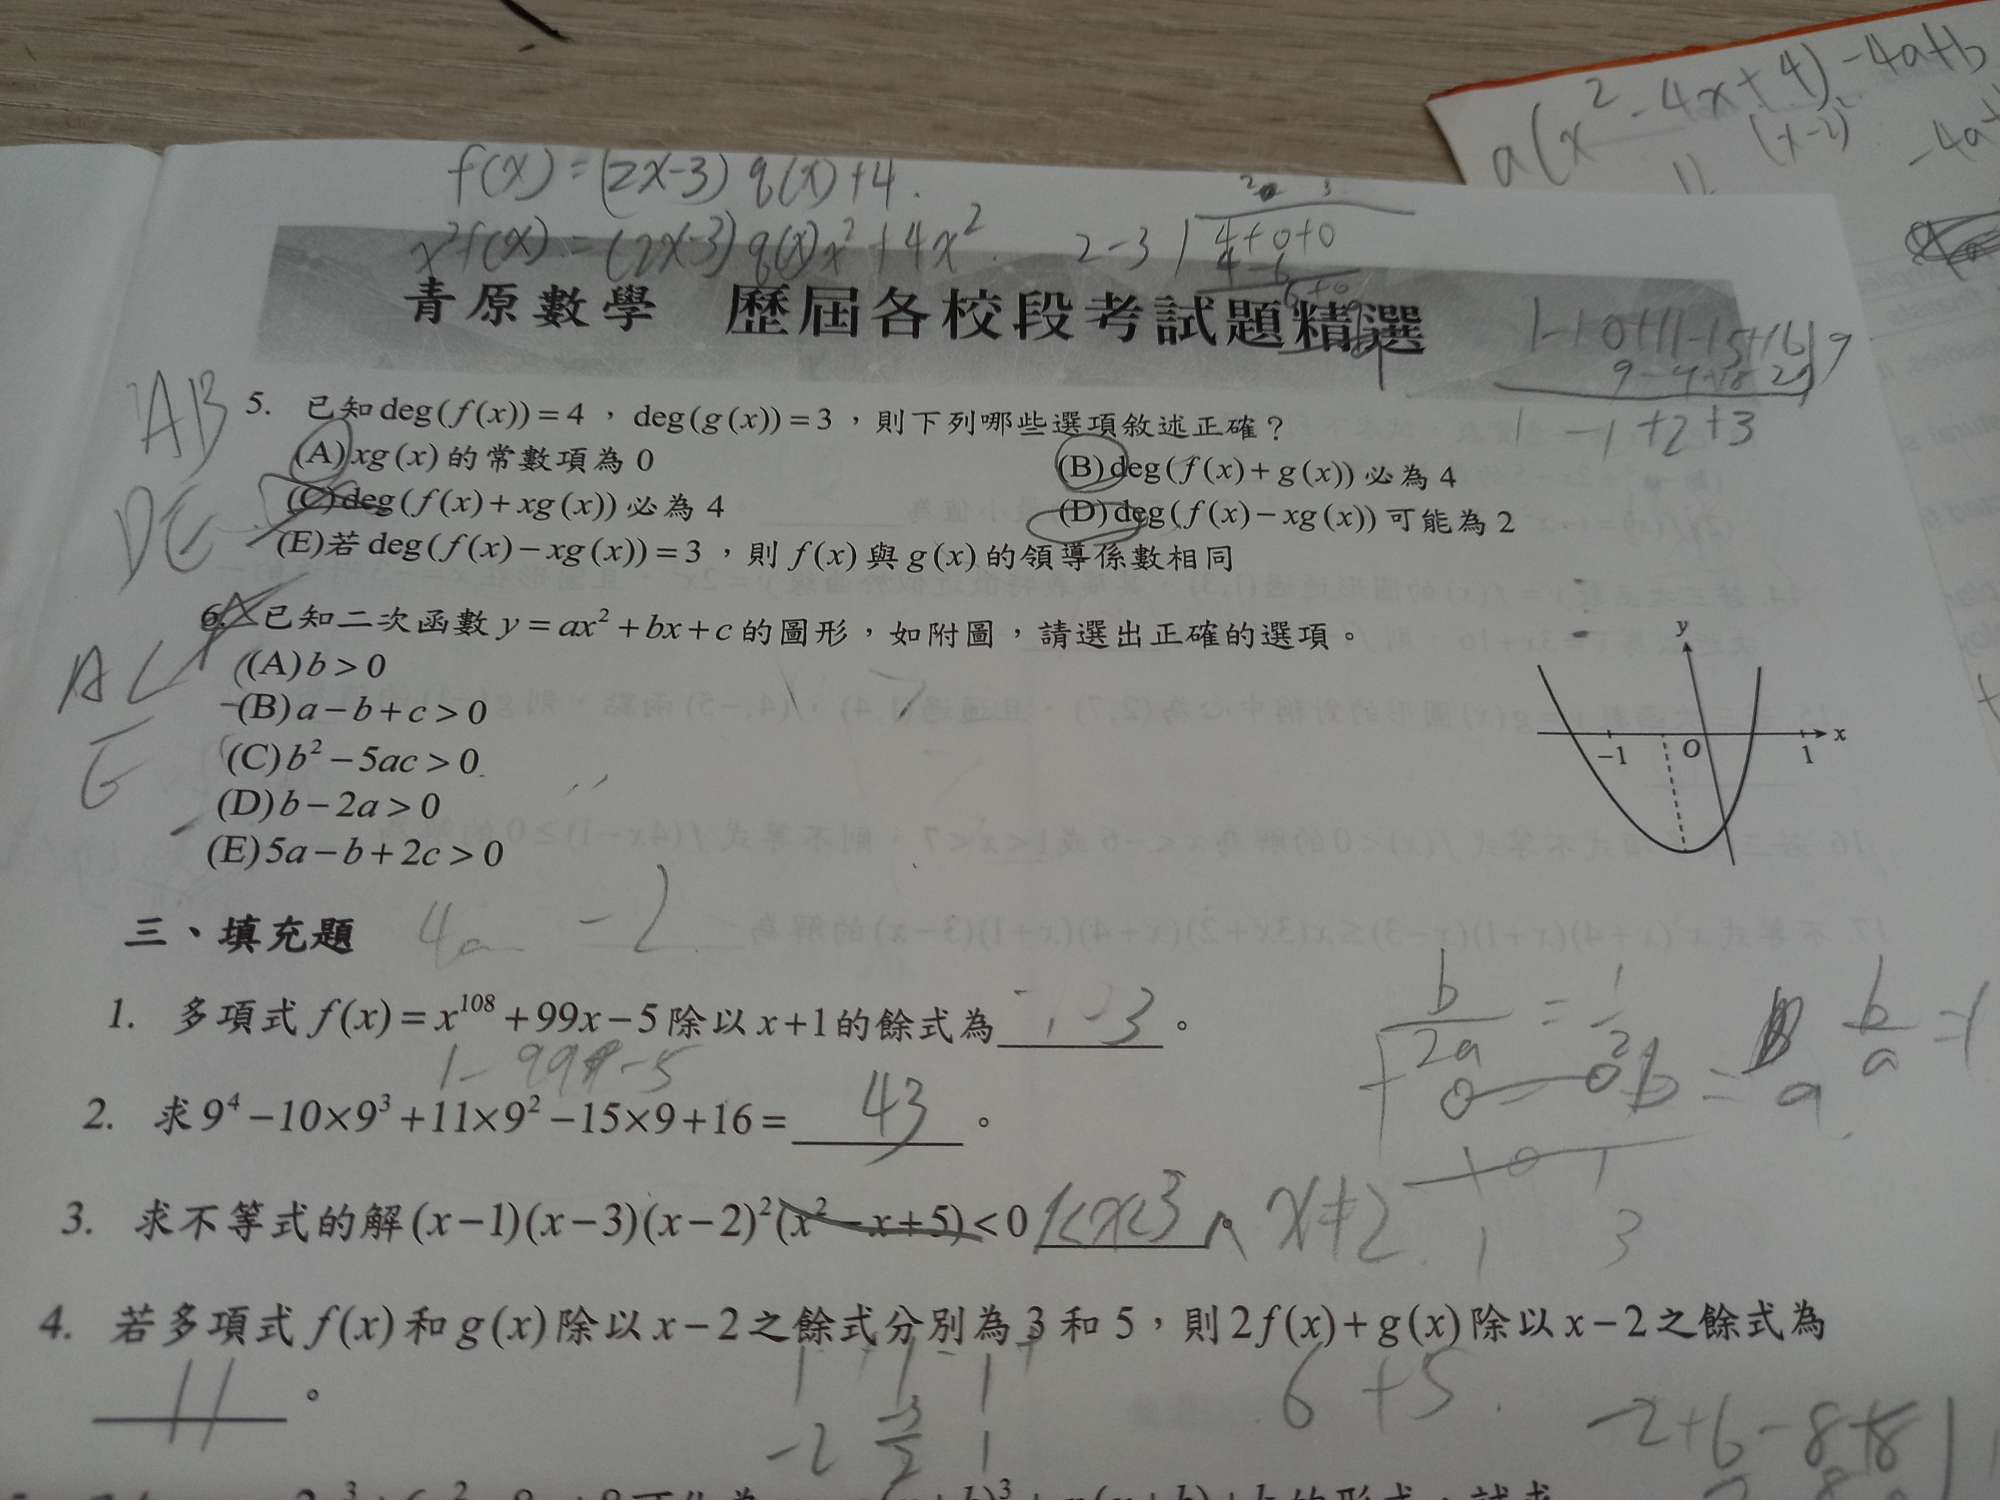 a(x² - 4x + 4) - 4a + b
(x-2)²
-4a
f(x) = (2x-3) q(x) + 4.
x²f(x) = (2x-3) q(x)x² + 4x²
2-3
4+0+0
4-6
青原數學 歷屆各校段考試題精選
1-10+11-15+16 9
1 -1 +2 +3
AB
DE
5. 已知deg(f(x))=4，deg(g(x))=3，則下列哪些選項敘述正確？
(A)xg(x)的常數項為 0
(B)deg(f(x)+g(x))必為 4
(C)deg(f(x)+xg(x))必為 4
(D)deg(f(x)−xg(x))可能為 2
(E)若deg(f(x)−xg(x))=3，則f(x)與g(x)的領導係數相同
AC
E
6. 已知二次函數y=ax²+bx+c的圖形，如附圖，請選出正確的選項。
(A)b>0
(B)a−b+c>0
(C)b²−5ac>0
(D)b−2a>0
(E)5a−b+2c>0
y
−1 O 1 x
三、填充題
4a -2
1. 多項式f(x)=x¹⁰⁸+99x−5除以x+1的餘式為 。
1-99-5
b/2a = 1/2
b = a
b/a = 1
2. 求9⁴−10×9³+11×9²−15×9+16= 43 。
3. 求不等式的解(x−1)(x−3)(x−2)²(x²−x+5)<0 1<x<3 x≠2
1 3
4. 若多項式f(x)和g(x)除以x−2之餘式分別為3和5，則2f(x)+g(x)除以x−2之餘式為
11 。
6+5.
1 1 1
-2 -3/2 1
-2+6-8+8